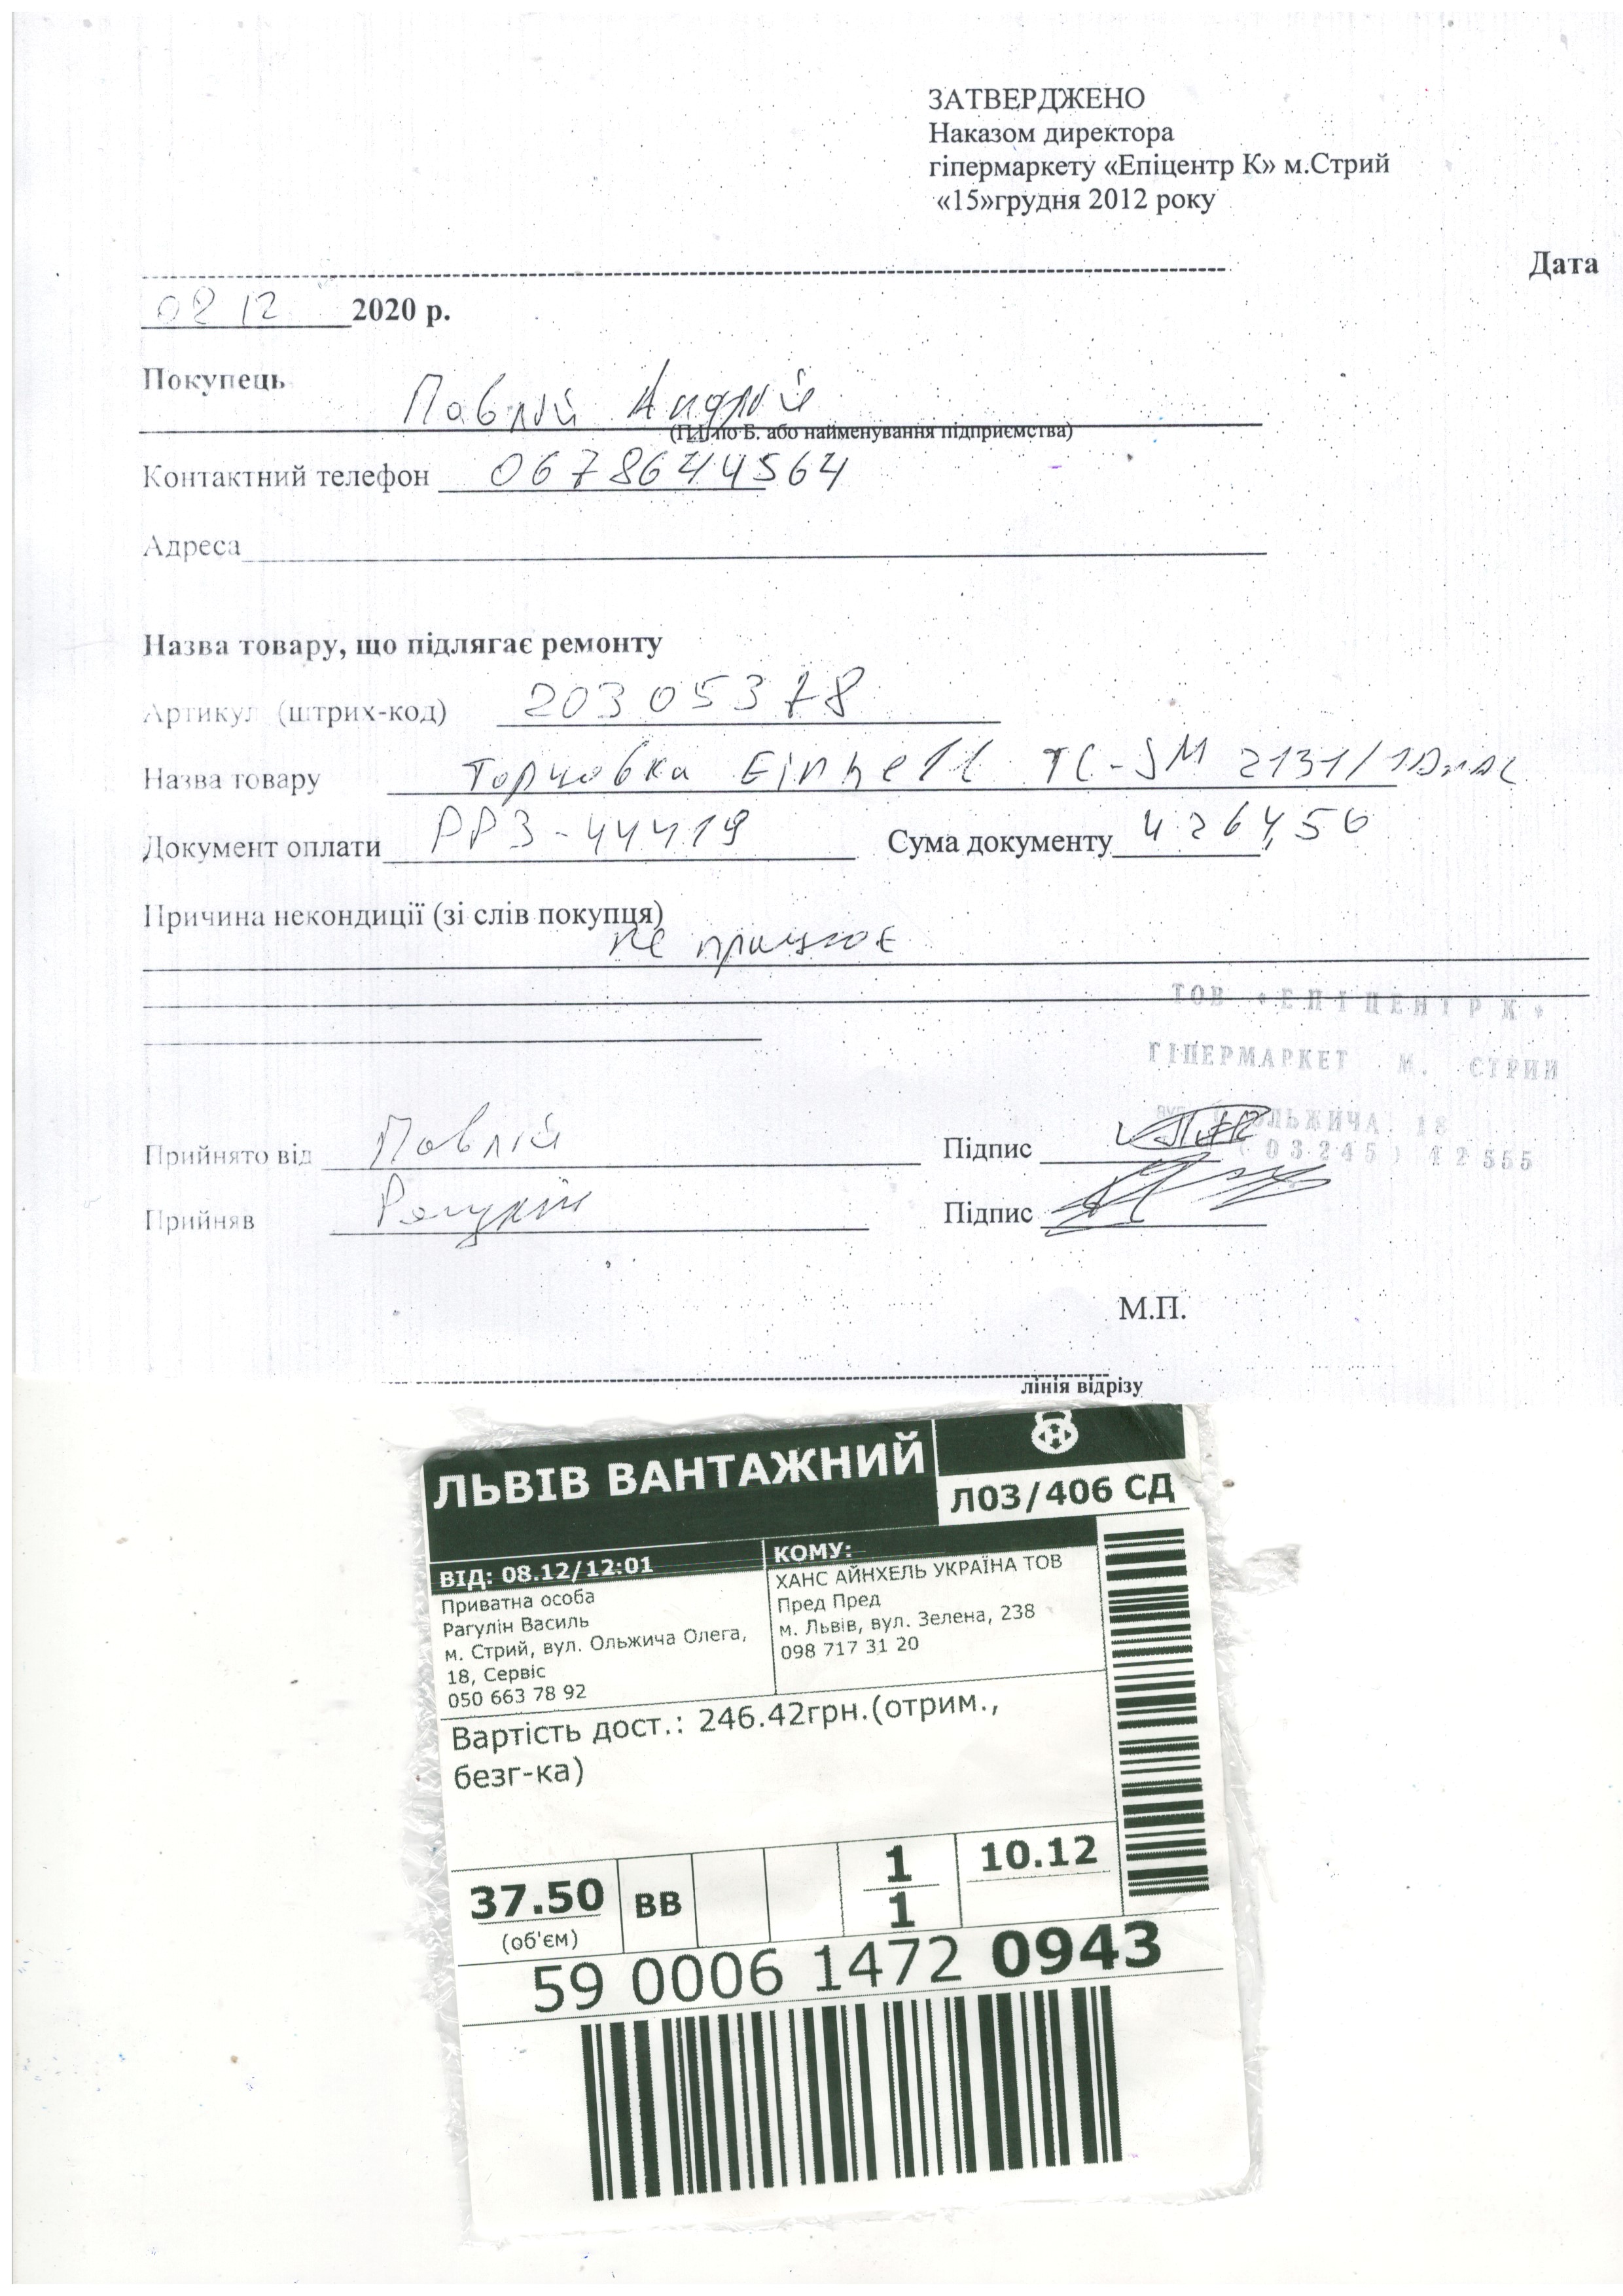 ЗАТВЕРДЖЕНО
Наказом директора
гіпермаркету «Епіцентр К» м.Стрий
«15»грудня 2012 року
Дата
08 12 2020 р.
Покупець
Павлій Андрій
(П.І.по Б. або найменування підприємства)
Контактний телефон 0678644564
Адреса
Назва товару, що підлягає ремонту
Артикул (штрих-код) 20305378
Назва товару Торцовка Einhell TC-SM 2131/1 Dual
Документ оплати РРЗ-44419 Сума документу 4264,50
Причина некондиції (зі слів покупця)
не працює
ТОВ «ЕПІЦЕНТР К»
ГІПЕРМАРКЕТ М. СТРИЙ
ОЛЬЖИЧА 18
(03245) 12555
Прийнято від Павлій Підпис
Прийняв Рагулін Підпис
М.П.
лінія відрізу
ЛЬВІВ ВАНТАЖНИЙ
Л03/406 СД
ВІД: 08.12/12:01
Приватна особа
Рагулін Василь
м. Стрий, вул. Ольжича Олега,
18, Сервіс
050 663 78 92
КОМУ:
ХАНС АЙНХЕЛЬ УКРАЇНА ТОВ
Пред Пред
м. Львів, вул. Зелена, 238
098 717 31 20
Вартість дост.: 246.42грн.(отрим.,
безг-ка)
37.50
(об'єм)
ВВ
1
1
10.12
59 0006 1472 0943